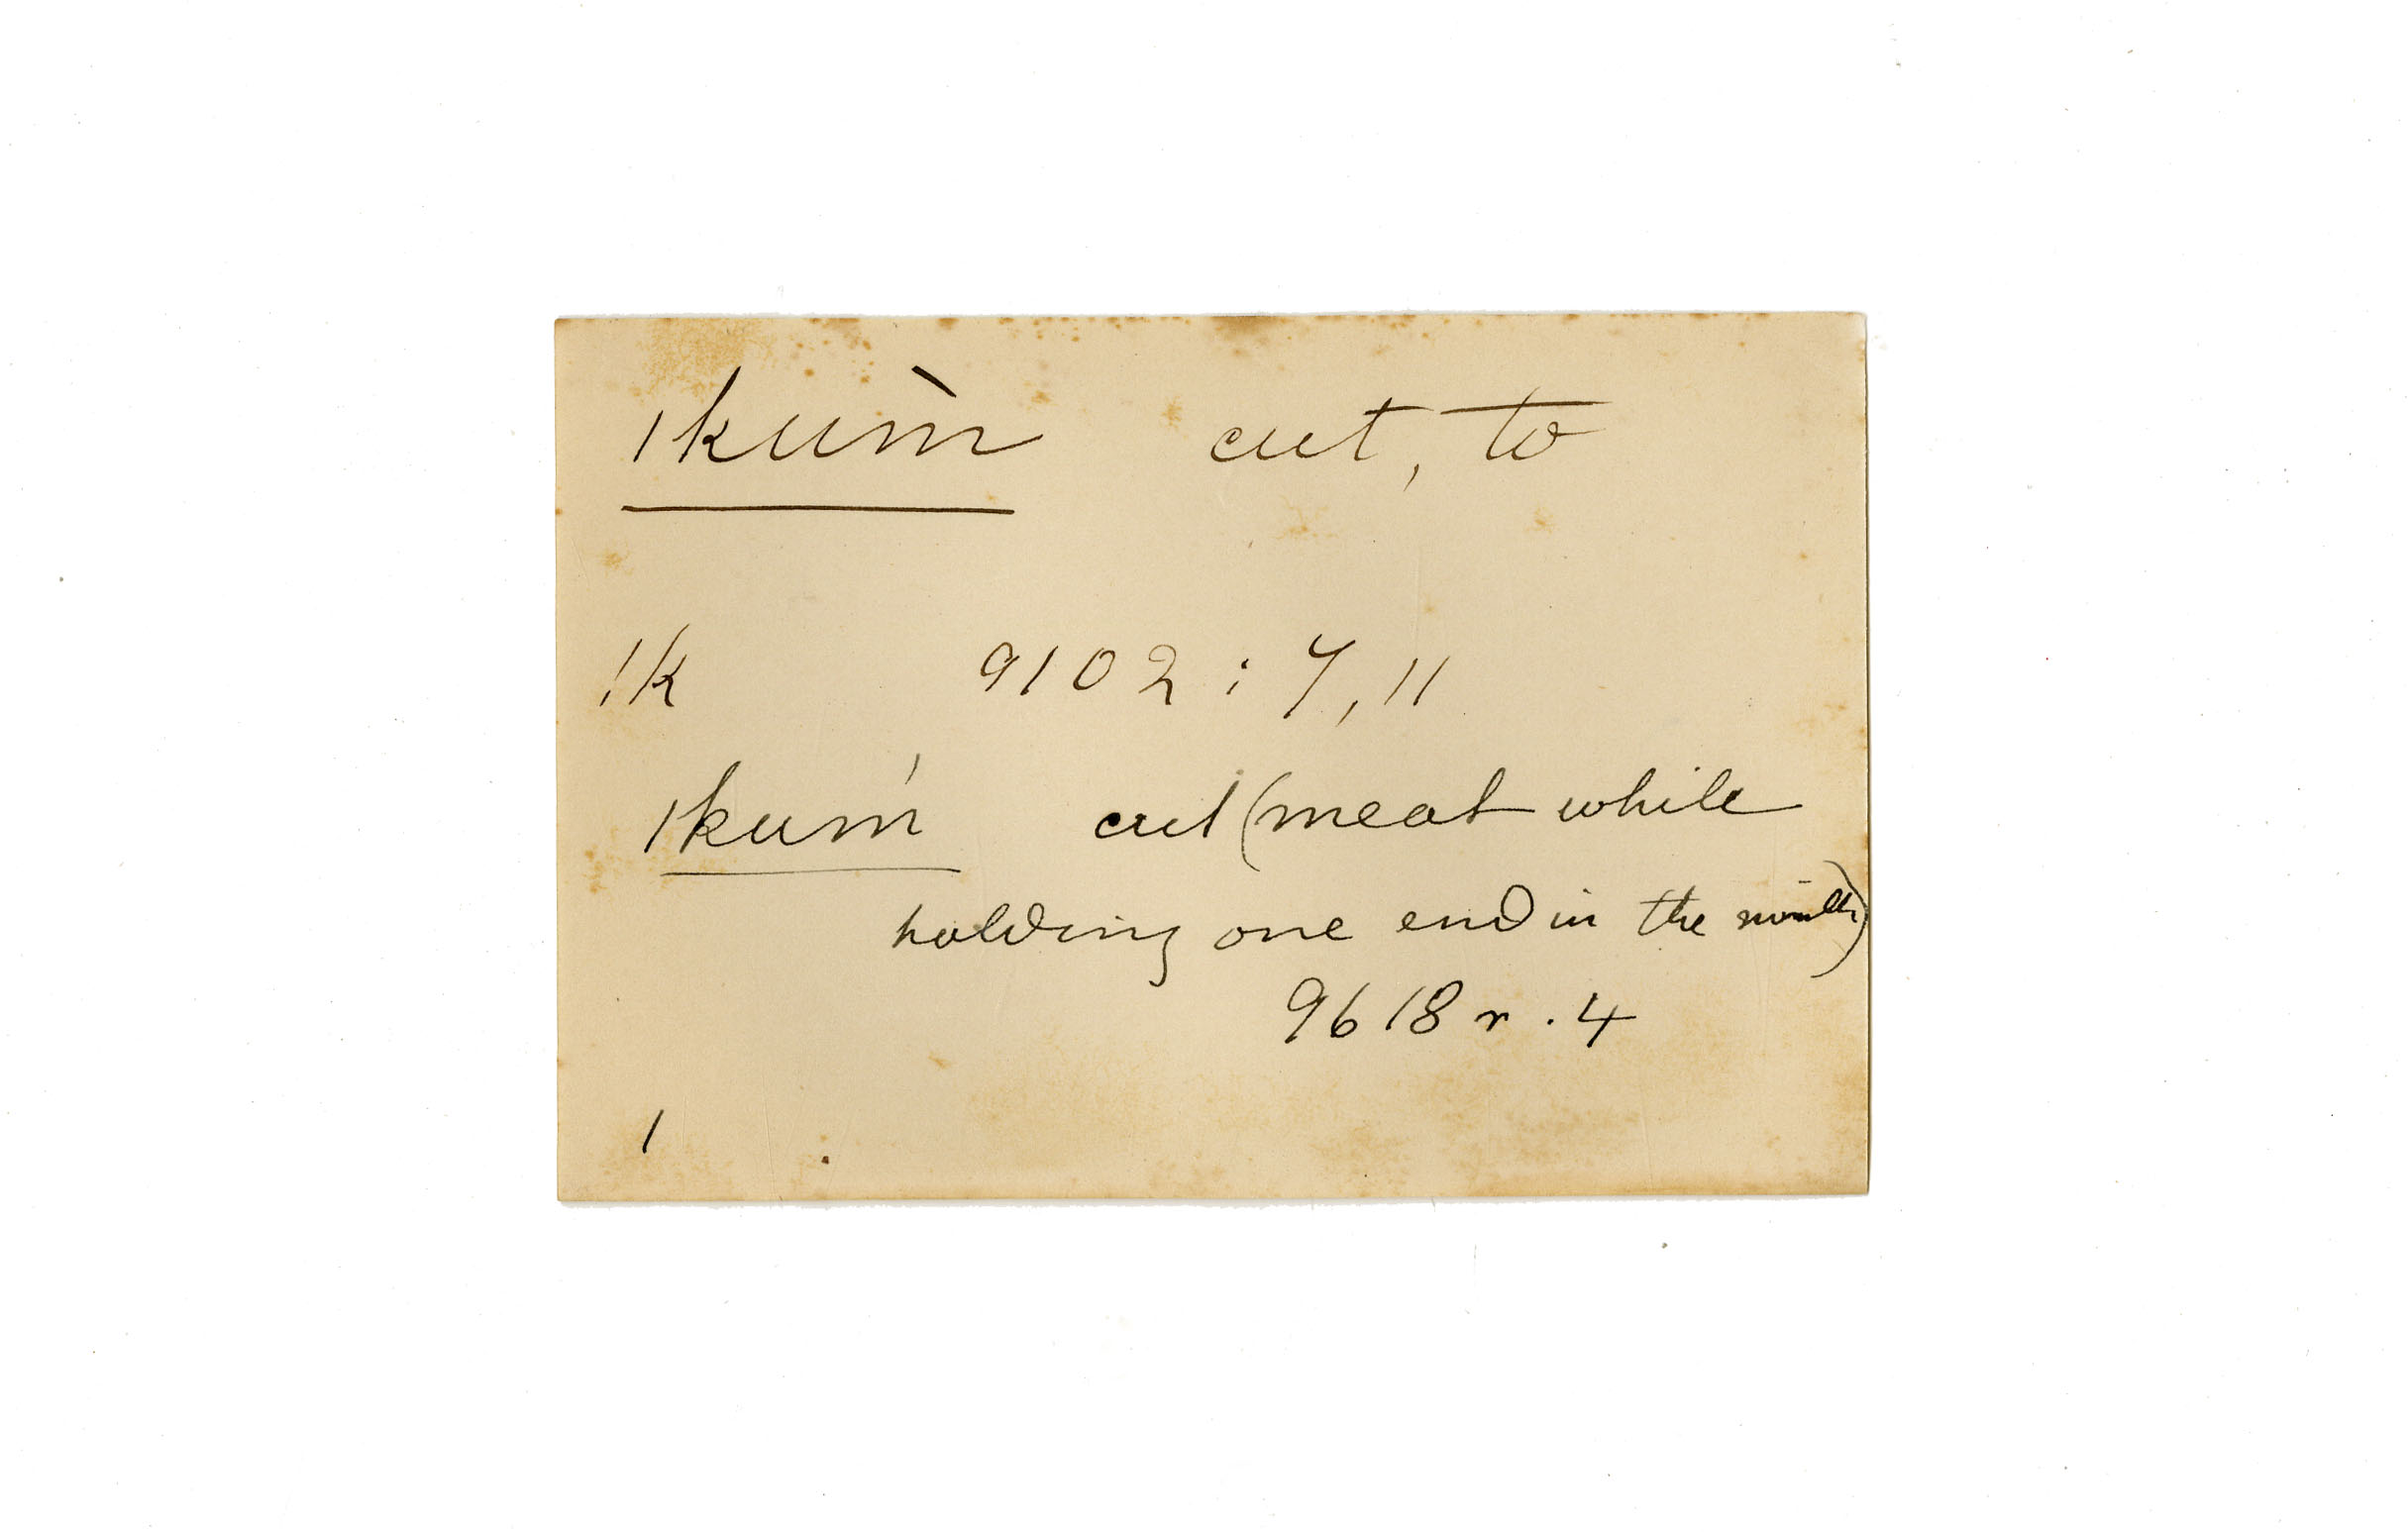 ıkum̀ cut, to
!k 9102 : 7, 11
ıkum̍ cut (meat while
holding one end in the mouth)
9618 r. 4
1